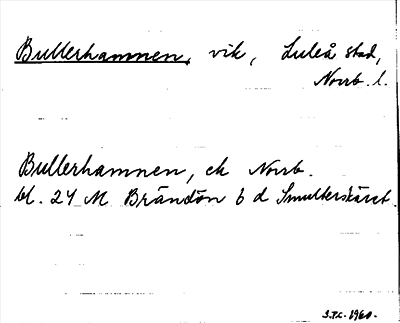 Bullerhamnen, vik, Luleå stad,
Norrb. l.
Bullerhamnen, ek Norrb.
bl. 24 M Brändön 6 d Smulterskäret.
S.T.C. 1960.